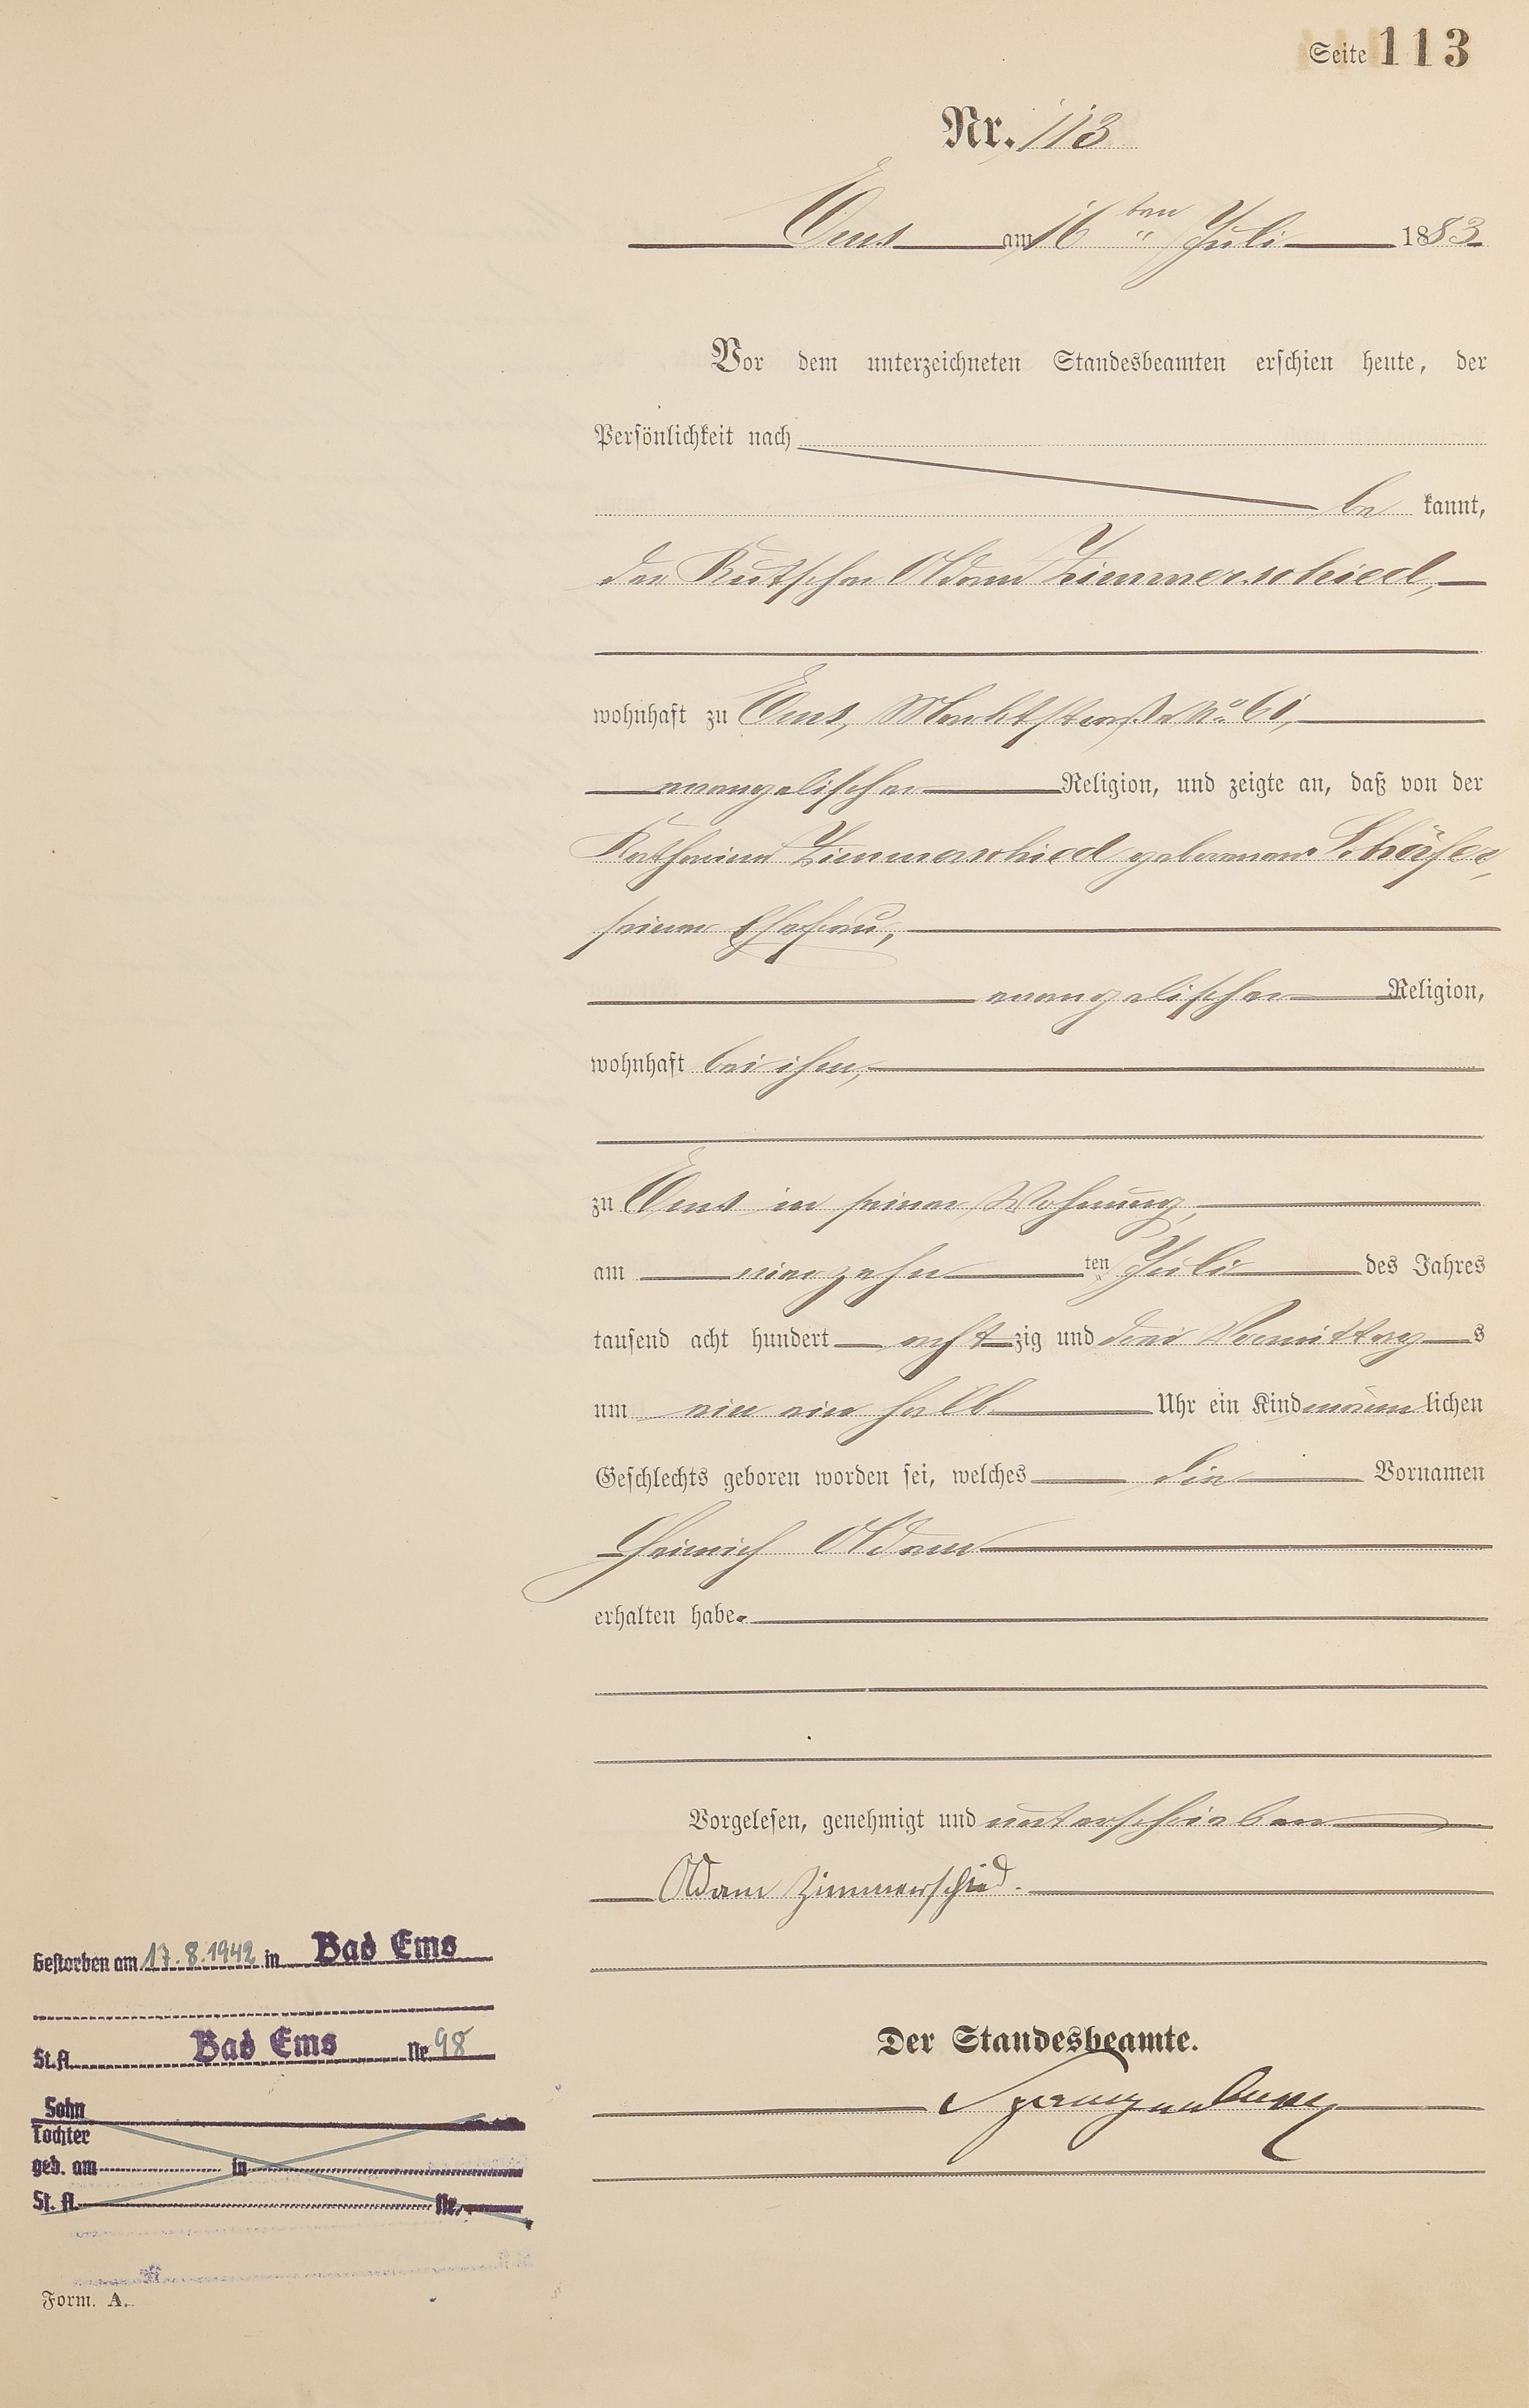 Seite 113
Nr. 113
Ems am 16ten Juli 1883
Vor dem unterzeichneten Standesbeamten erschien heute, der
Persönlichkeit nach
be kannt,
der Kutscher Adam Zimmerschied,
wohnhaft zu Ems, Marktstraße No. 61,
evangelischer Religion, und zeigte an, daß von der
Katharina Zimmerschied geborenen Schäfer,
seiner Ehefrau,
evangelischer Religion,
wohnhaft bei ihm,
zu Ems in seiner Wohnung,
am vierzehn ten Juli des Jahres
tausend acht hundert acht zig und drei Vormittag s
um ein ein halb Uhr ein Kind männ lichen
Geschlechts geboren worden sei, welches die Vornamen
Heinrich Adam
erhalten habe.
Vorgelesen, genehmigt und unterschrieben
Adam Zimmerschied.
Der Standesbeamte.
Spangenberg
Gestorben am 17.8.1942 in Bad Ems
St.A. Bad Ems Nr. 98
Sohn
Tochter
geb. am in
St. A. Nr.
Form. A.